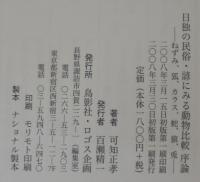 日独の民俗・諺にみる動物比較 序論
――ねずみ、狐、カラス、蛇、狼、兎――
二〇〇八年三月一五日初版第一刷印刷
二〇〇八年三月三〇日初版第一刷発行
定価（本体一八〇〇円＋税）
著者 可知正孝
発行者 百瀬精一
発行所 鳥影社・ロゴス企画
長野県諏訪市四賀二二九―一（編集室）
電話 〇二六六―五三―二九〇三
東京都新宿区西新宿三―五―一二―7F
電話 〇三―五九四八―六四七〇
印刷 モリモト印刷
製本 ナショナル製本